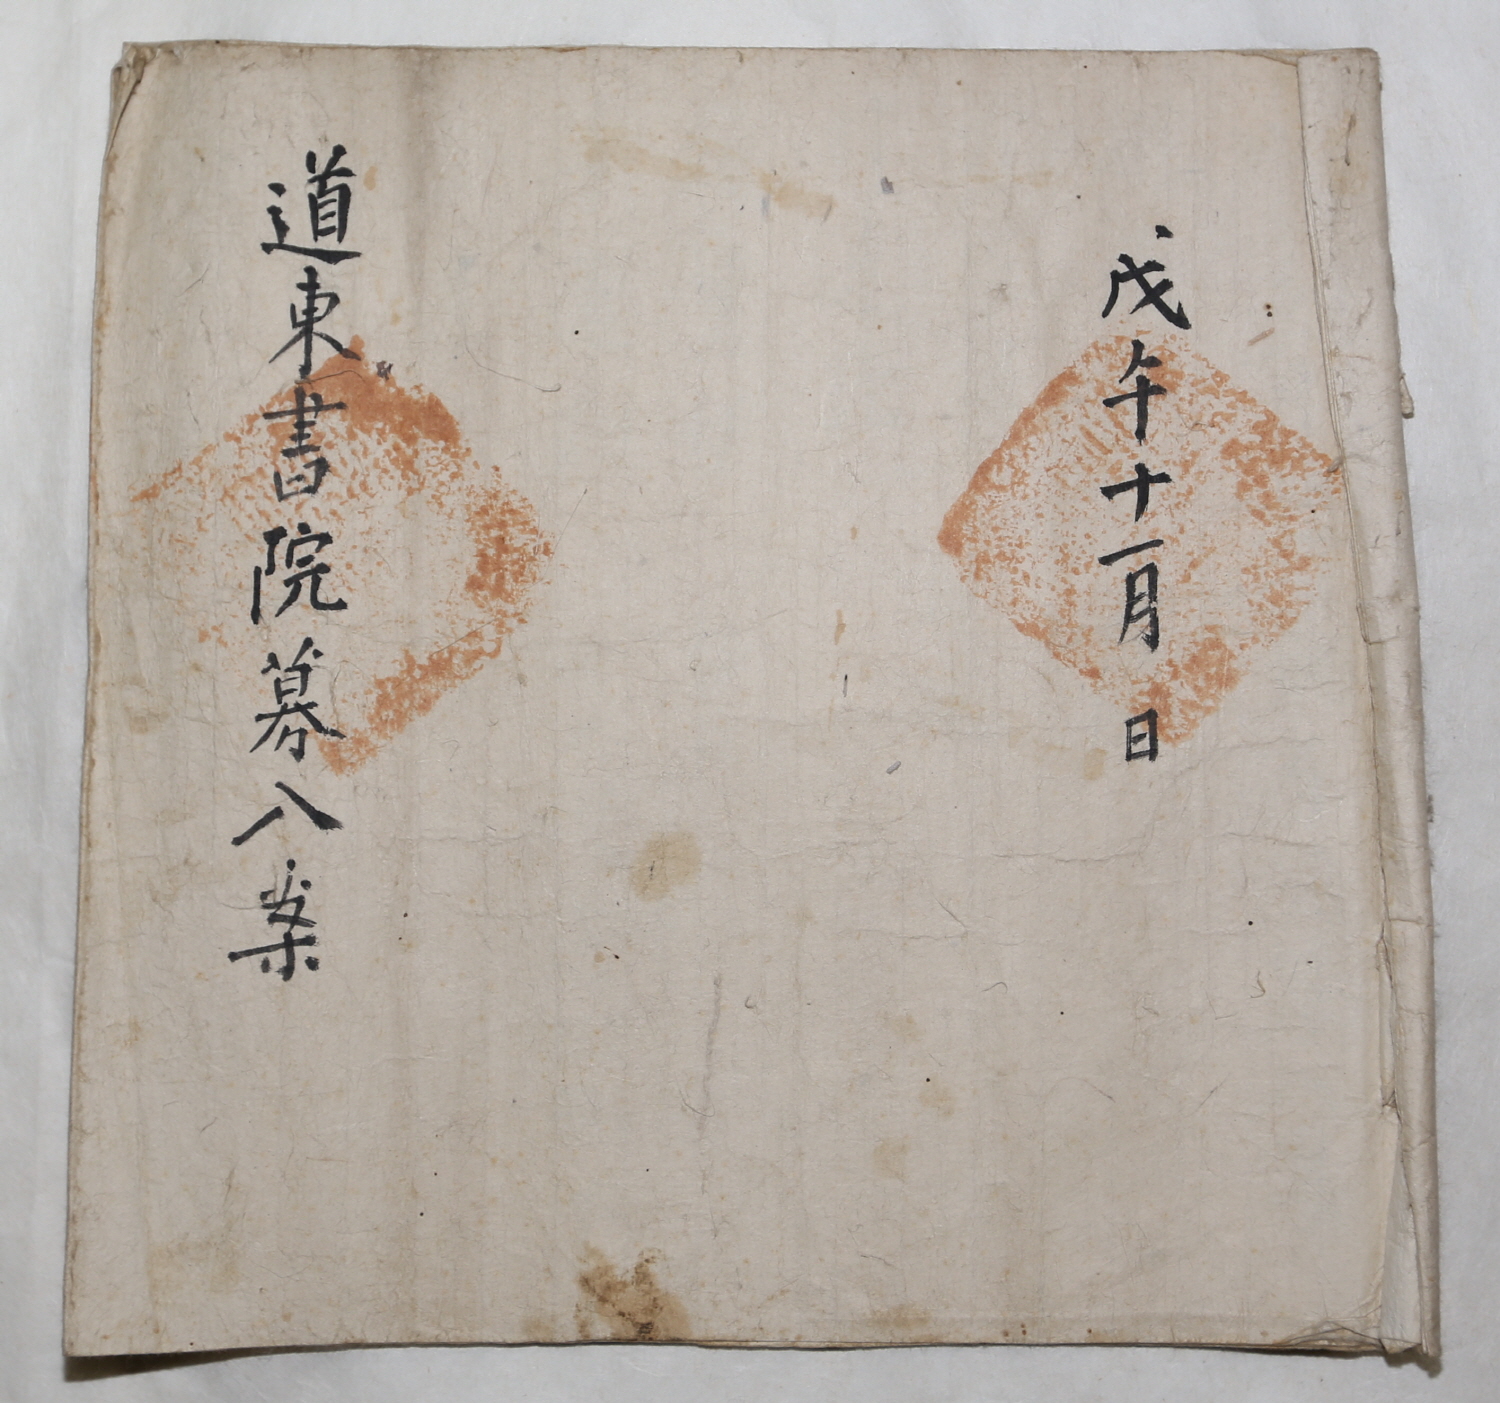 戊午十一月 日
道東書院募入案